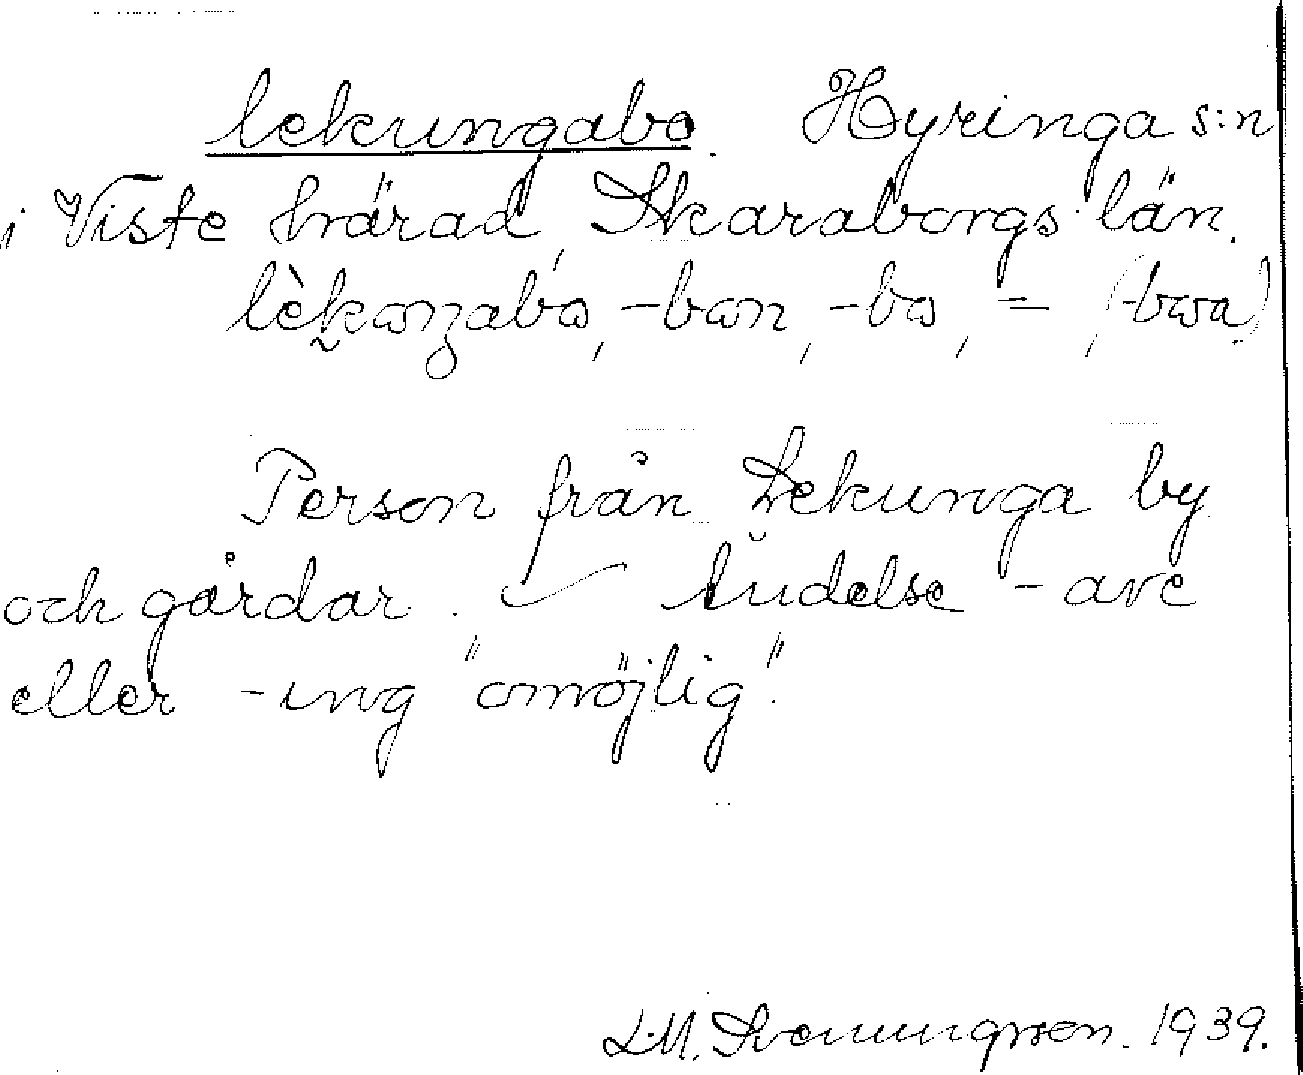 lekungabo. Hyringa s:n
i Viste härad, Skaraborgs län.
-bon, -bo, =
Person från Lekunga by
och gårdar. Ändelse -are
eller -ing "omöjlig".
L.M. Svenungsson. 1939.